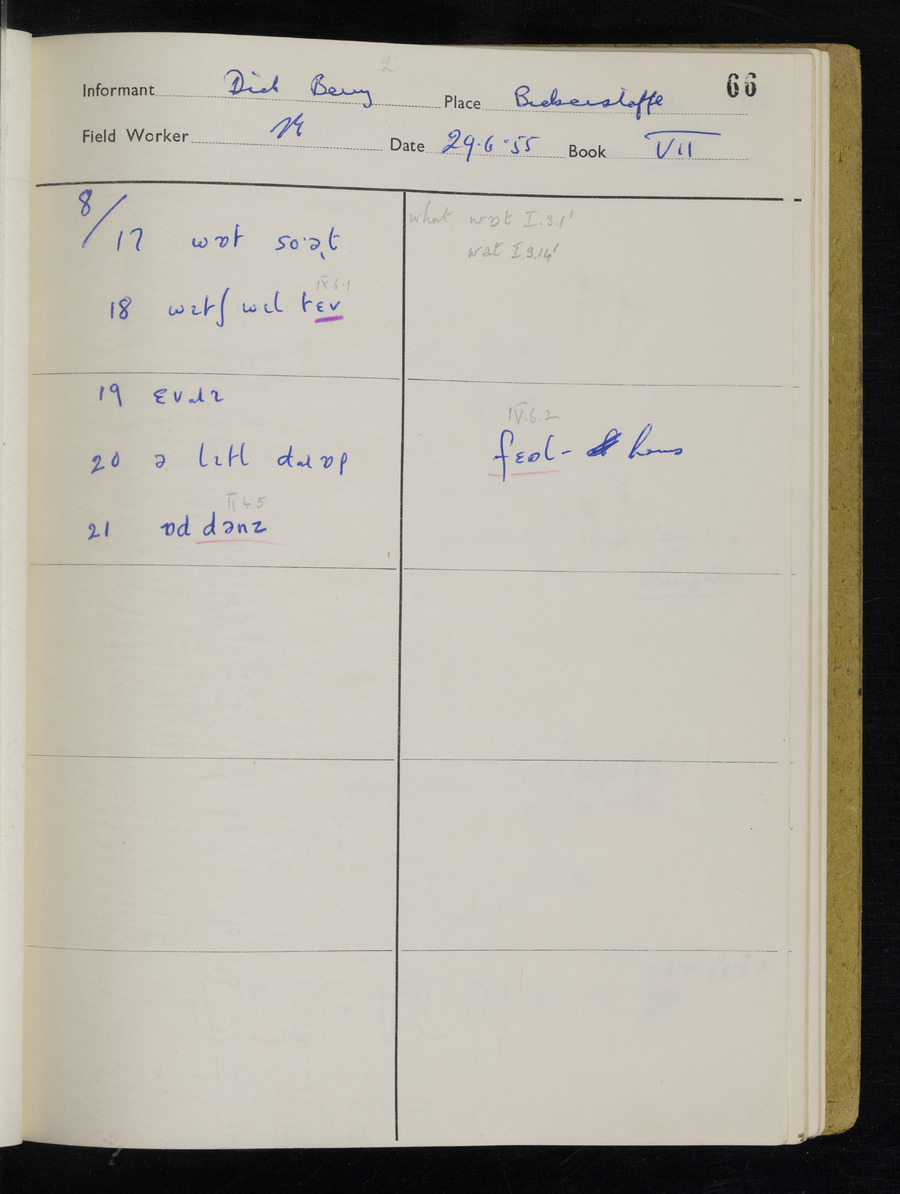 2
66
Informant Dick Berry Place Bickerstaffe
Field Worker Date 29.6.55 Book VII
8/17 wɒt so·ə̣t
what wɒt I.3.1'
wat I.3.14'
IX.6.1
18 wɪtʃ wɪl tɛv
19 ɛvəɹz
IV.6.2
20 ə lɪtl dɹɒp
fɛəl-
II 4 5
21 ɒd dənz